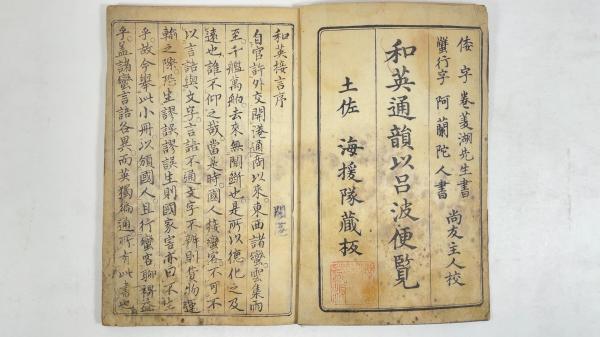 倭字 巻菱湖先生書
蟹行字 阿蘭陀人書
尚友主人校
和英通韻以呂波便覧
土佐 海援隊藏板
和英接言序
自官許外交開港通商以來東西諸蠻雲集雨
至千艦萬舶去來無間斷也是所以德化之及
遠也誰不仰之哉當是時國人接蠻客不可不
以言語與文字言語不通文字不辨則貨物運
輸之際恐生謬誤謬誤生則國家害亦曰不生
乎故今舉此小冊以頒國人且行蠻客聊裨益
乎蓋諸蠻言語各異而英獨徧通所有此書也